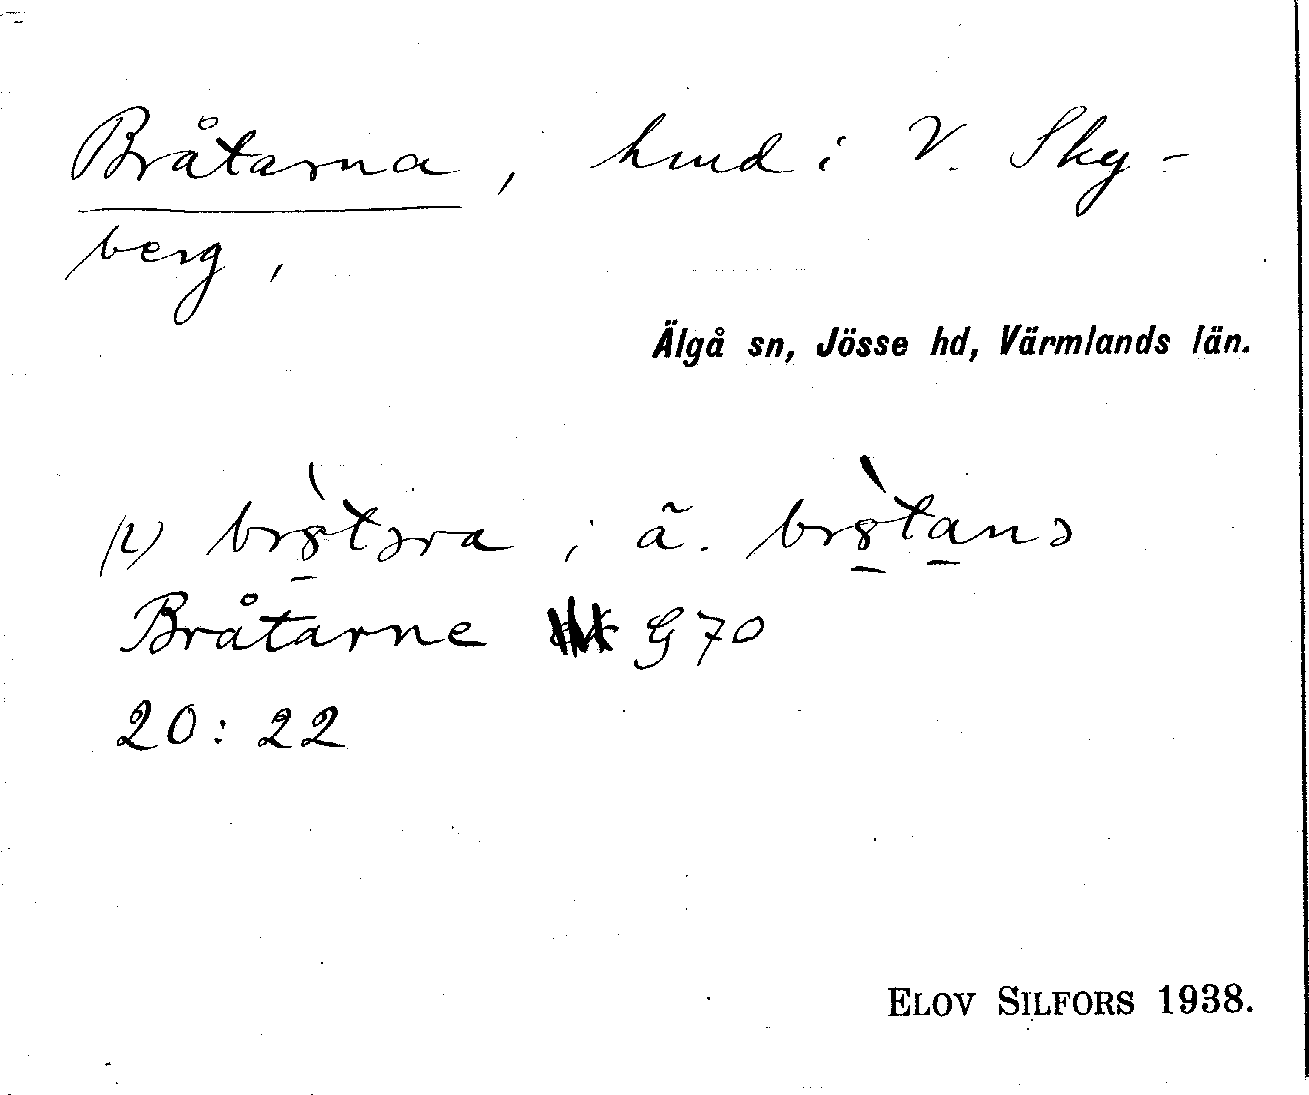 Bråtarna, hmd i V. Sky-
berg,
Älgå sn, Jösse hd, Värmlands län.
(2) br8̲̀tɔra ; ä. br8̲̀ta̲nɔ
Bråtarne G 70
20: 22
ELOV SILFORS 1938.